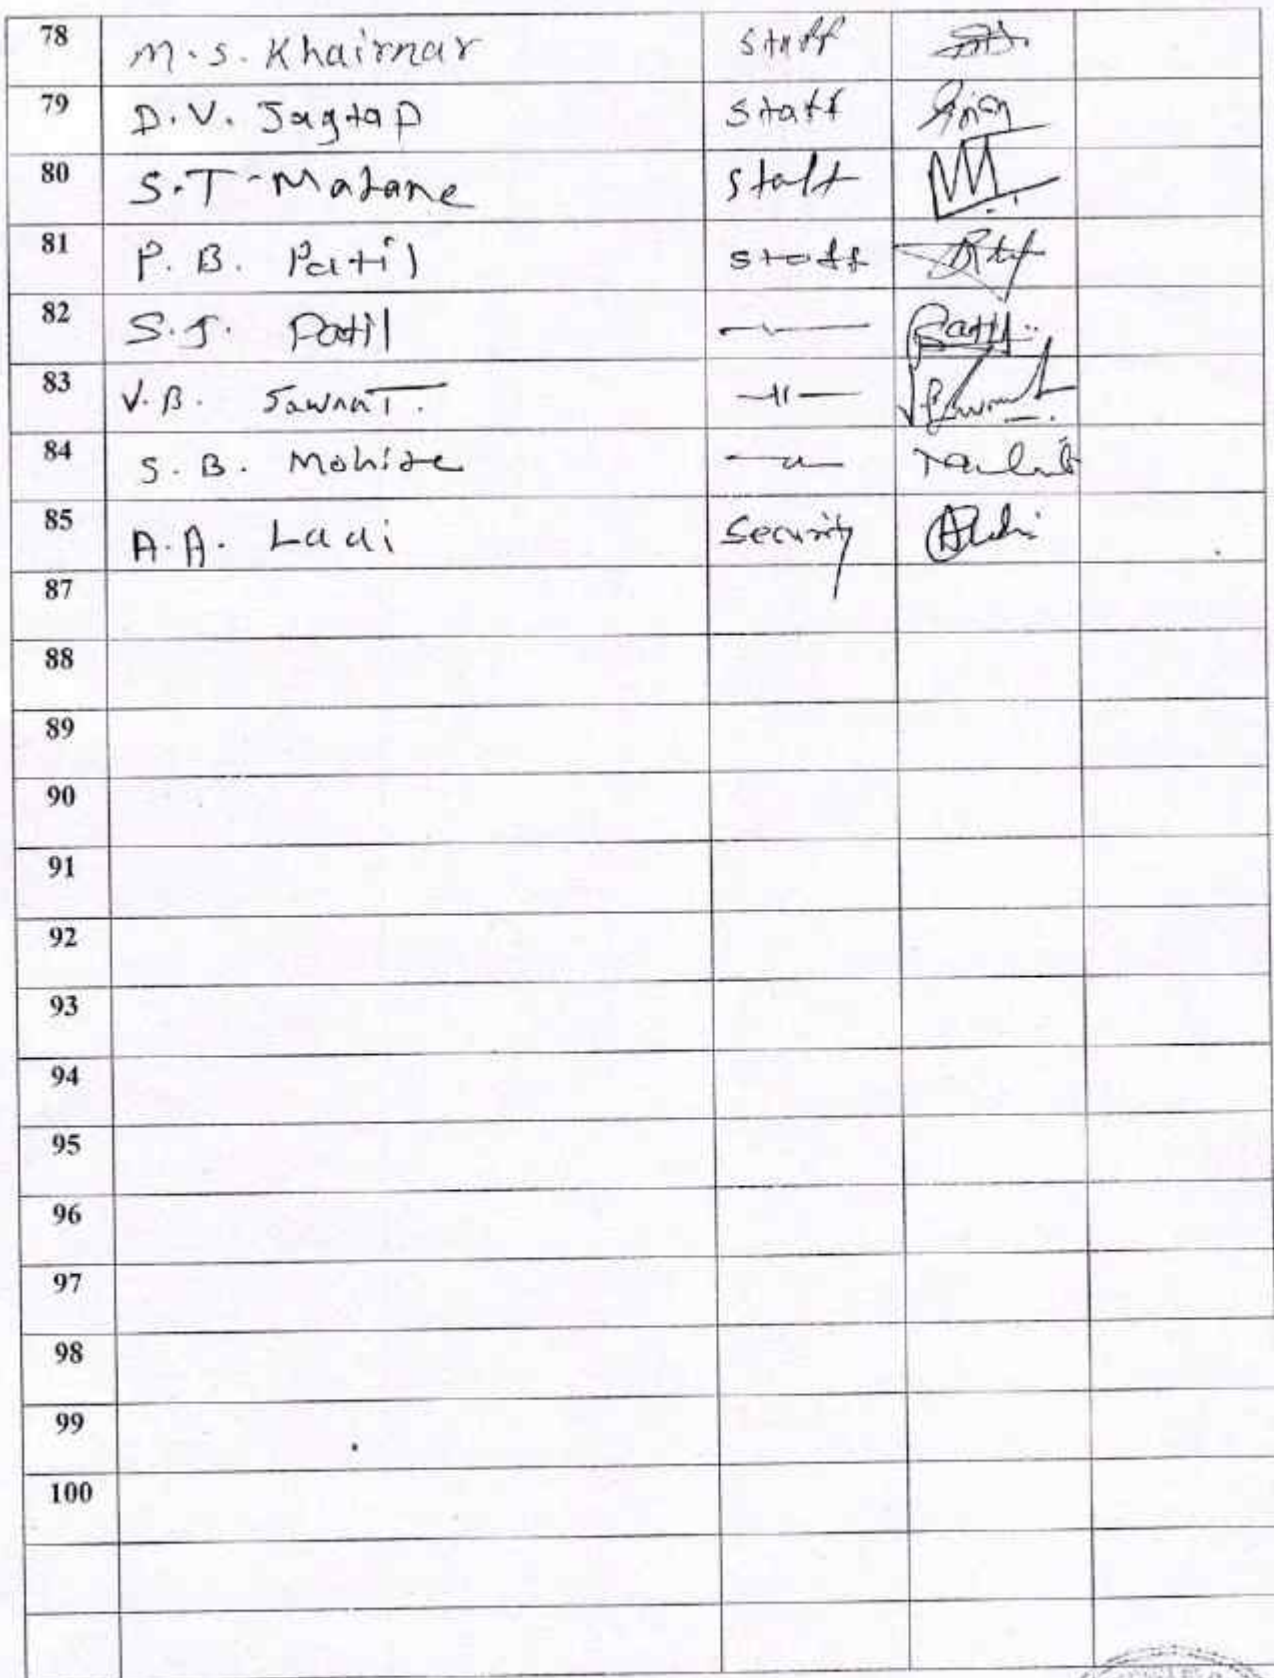 78 M.S. Khairnar Staff
79 D.V. Jagtap Staff
80 S.T. Matane Staff
81 P.B. Patil Staff
82 S.J. Patil —"—
83 V.B. Sawant. —"—
84 S.B. Mohite —"—
85 A.A. Ladi Security
87
88
89
90
91
92
93
94
95
96
97
98
99
100